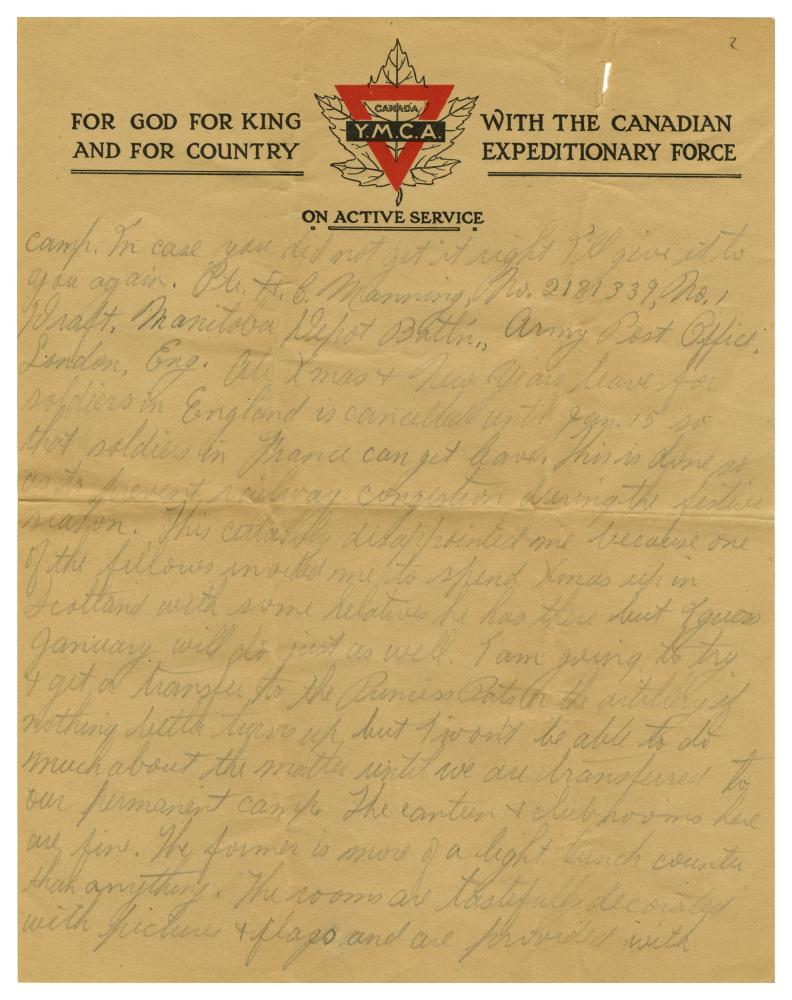 2
FOR GOD FOR KING
AND FOR COUNTRY
CANADA
Y.M.C.A.
WITH THE CANADIAN
EXPEDITIONARY FORCE
ON ACTIVE SERVICE
camp. In case you did not get it right I'll give it to
you again. Pte. H. C. Manning, No. 2181339, No. 1
Draft, Manitoba Depot Batt'n., Army Post Office,
London, Eng. All Xmas & New Years leave for
soldiers in England is cancelled until Jan. 15 so
that soldiers in France can get leave. This is done so
as to prevent railway congestion during the festive
season. This certainly disappointed me because one
of the fellows invited me to spend Xmas up in
Scotland with some relatives he has there but I guess
January will do just as well. I am going to try
& get a transfer to the Princess Pats or the artillery if
nothing better turns up but I won't be able to do
much about the matter until we are transferred to
our permanent camp. The canteen & club rooms here
are fine. The former is more of a light lunch counter
than anything. The rooms are tastefully decorated
with pictures & flags and are provided with